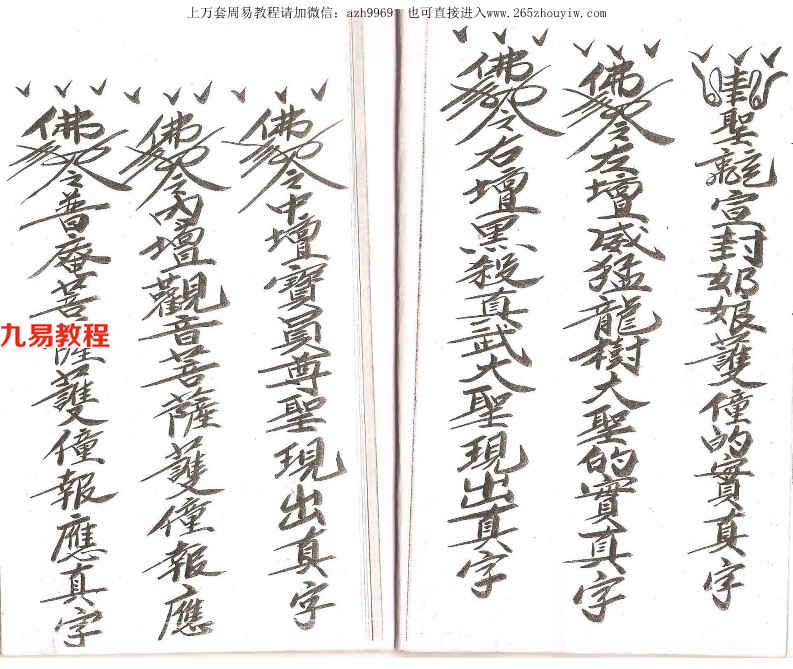 上万套周易教程请加微信：azh9969 也可直接进入www.265zhouyiw.com
聖龍宣封奶娘護僮的實真字
佛令左壇威猛龍樹大聖的實真字
佛令右壇黑殺真武大聖現出真字
佛令中壇寶員尊聖現出真字
佛令內壇觀音菩薩護僮報應
佛令普庵菩薩護僮報應真字
九易教程